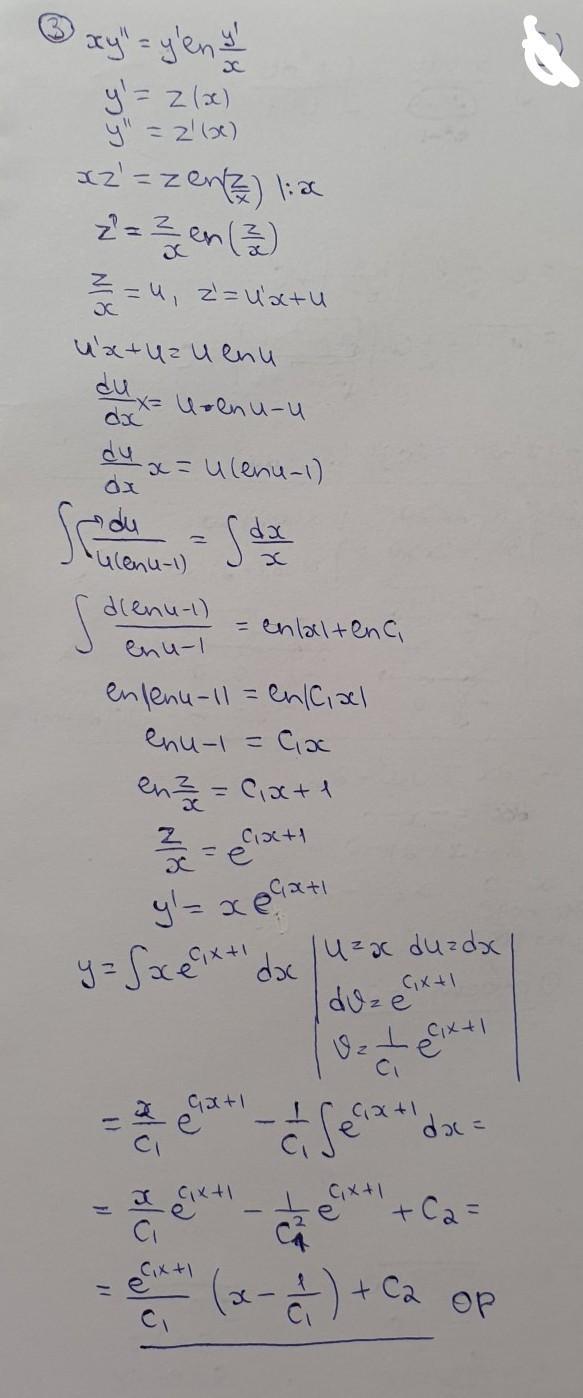 ③ xy'' = y'ln y'/x
y' = z(x)
y'' = z'(x)
xz' = z ln(z/x) |:x
z' = z/x ln(z/x)
z/x = u, z' = u'x+u
u'x+u = u ln u
du/dx x = u·ln u-u
du/dx x = u(ln u-1)
∫ du/u(ln u-1) = ∫ dx/x
∫ d(ln u-1)/ln u-1 = ln|x|+ln C₁
ln|ln u-1| = ln|C₁x|
ln u-1 = C₁x
ln z/x = C₁x+1
z/x = e^(C₁x+1)
y' = x e^(C₁x+1)
y = ∫x e^(C₁x+1) dx | u=x du=dx |
| dv = e^(C₁x+1) |
| v = 1/C₁ e^(C₁x+1) |
= x/C₁ e^(C₁x+1) - 1/C₁ ∫e^(C₁x+1) dx =
= x/C₁ e^(C₁x+1) - 1/C₁² e^(C₁x+1) + C₂ =
= e^(C₁x+1)/C₁ (x - 1/C₁) + C₂ OP